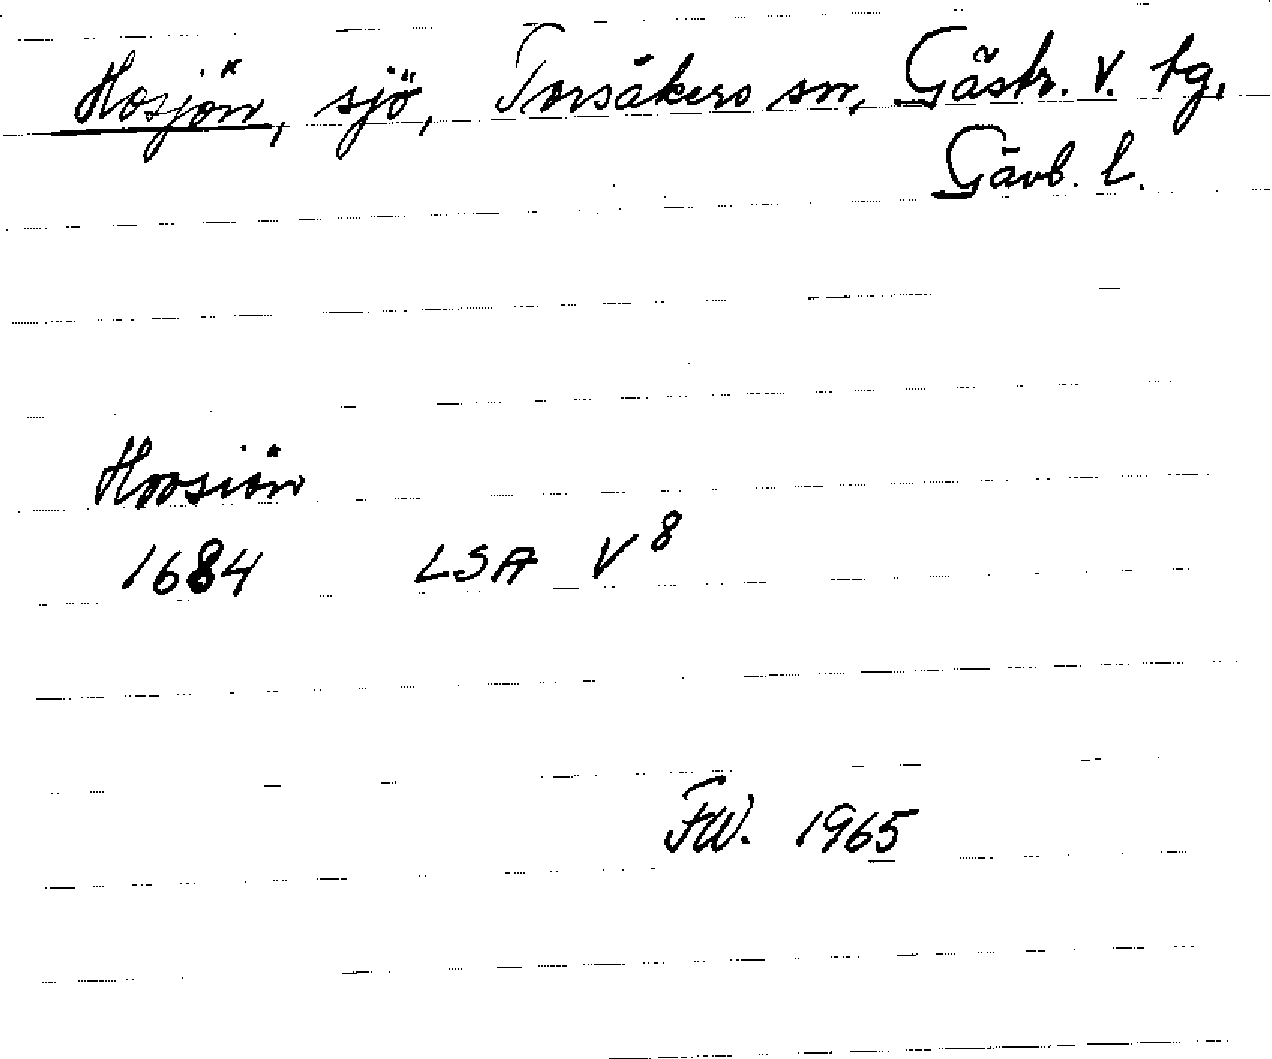 Hosjön, sjö, Torsåkers sn, Gästr. V. tg,
Gävb. l.
Hoosiön
1684 LSA V 8
FW. 1965